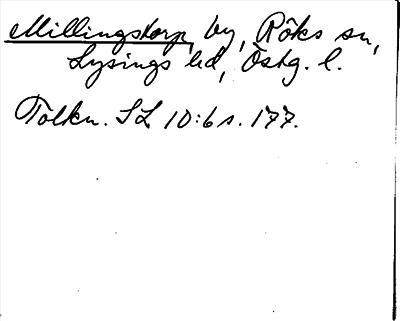 Millingstorp, by, Röks sn,
Lysings hd, Östg. l.
Tolkn. SL 10:6 s. 177.